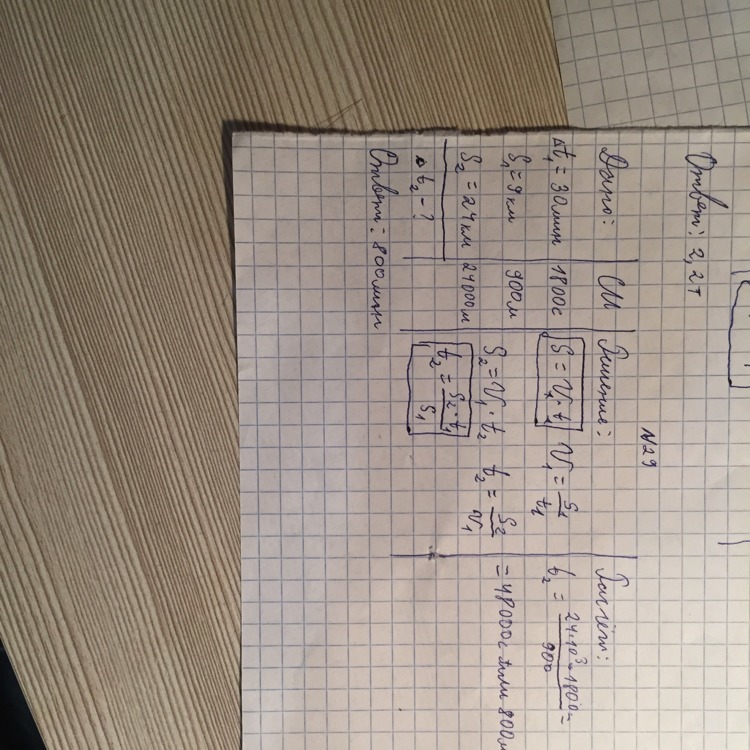 Ответ: 2,2т
№29
Дано:
Δt₁ = 30мин
S₁ = 9 км
S₂ = 24 км
t₂ - ?
СИ
1800с
900м
24000м
Решение:
S = V₁·t₁ V₁ = S₁/t₁
S₂ = V₁·t₂ t₂ = S₂/V₁
t₂ = S₂·t₁/S₁
Расчёт:
t₂ = 24·10³·1800/900 =
= 48000с или 800м
Ответ: 800мин